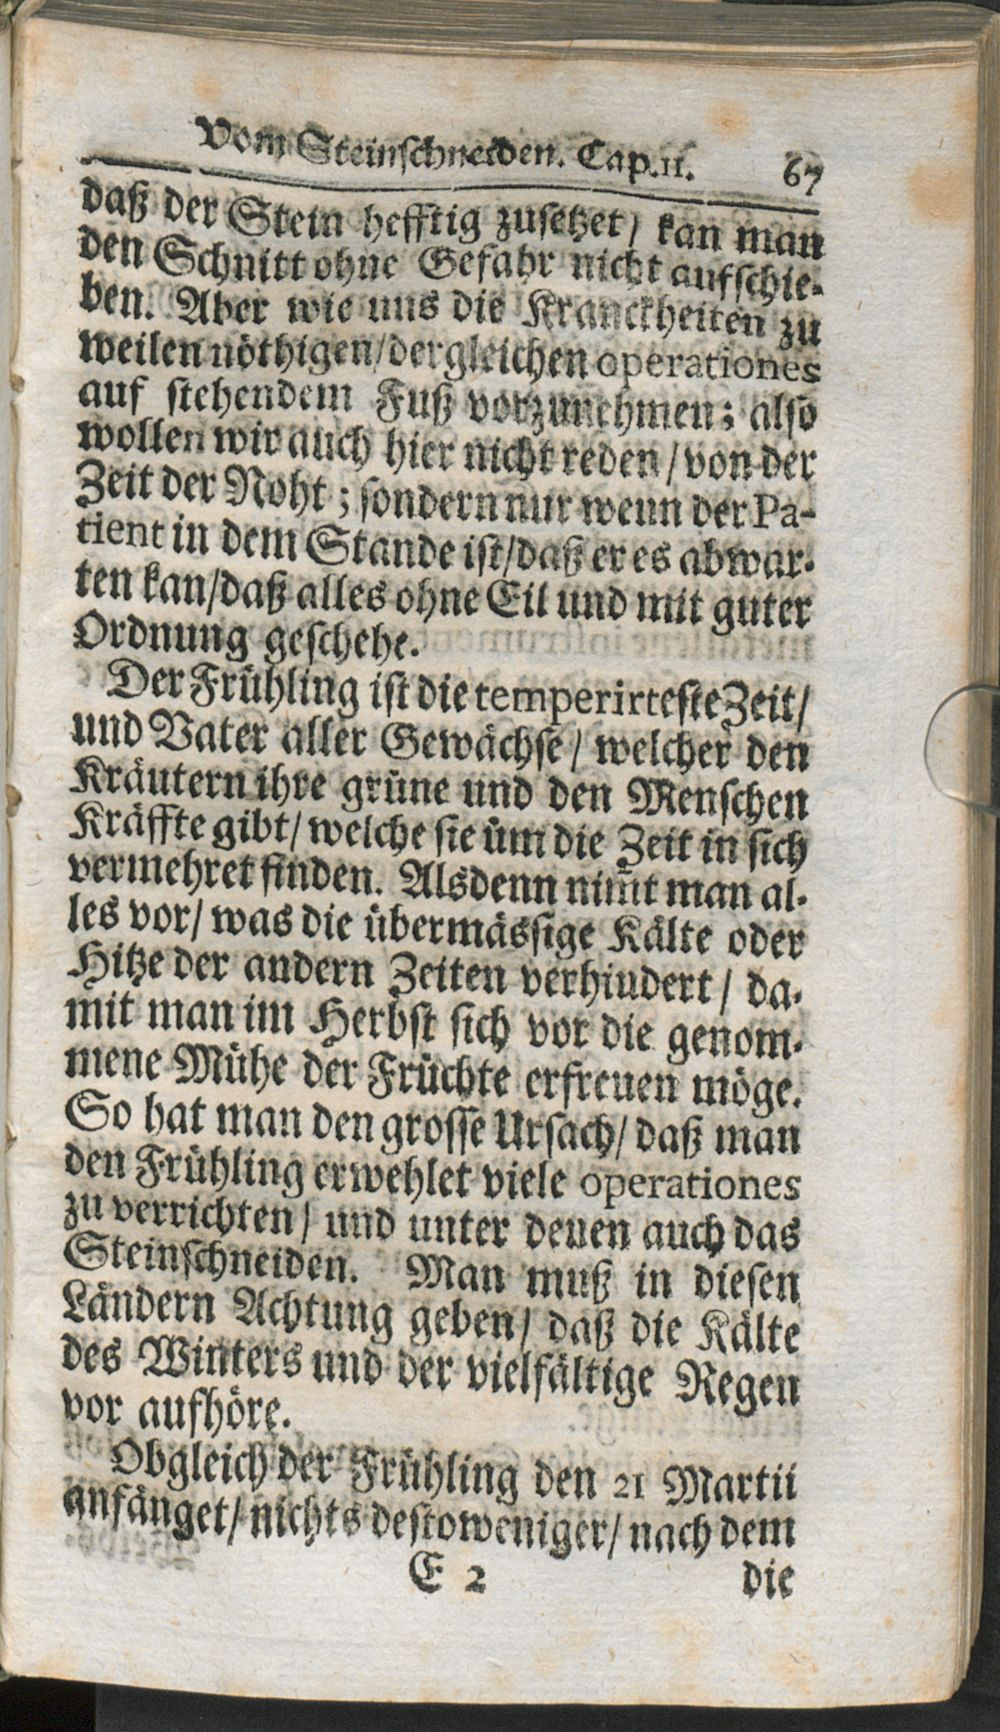 Vom Steinschneiden. Cap. 11. 67
daß der Stein hefftig zusetzet / kan man
den Schnitt ohne Gefahr nicht aufschie-
ben. Aber wie uns die Kranckheiten zu
weilen nöthigen / dergleichen operationes
auf stehendem Fuß vorzunehmen; also
wollen wir auch hier nicht reden / von der
Zeit der Noht; sondern nur wenn der Pa-
tient in dem Stande ist / daß er es abwar-
ten kan / daß alles ohne Eil und mit guter
Ordnung geschehe.
Der Frühling ist die temperirteste Zeit /
und Vater aller Gewächse / welcher den
Kräutern ihre grüne und den Menschen
Kräffte gibt / welche sie üm die Zeit in sich
vermehret finden. Alsdenn nim̄t man al-
les vor / was die übermässige Kälte oder
Hitze der andern Zeiten verhindert / da-
mit man im Herbst sich vor die genom-
mene Mühe der Früchte erfreuen möge.
So hat man den grosse Ursach / daß man
den Frühling erwehlet viele operationes
zu verrichten / und unter denen auch das
Steinschneiden. Man muß in diesen
Ländern Achtung geben / daß die Kälte
des Winters und der vielfältige Regen
vor aufhöre.
Obgleich der Frühling den 21 Martii
anfänget / nichts destoweniger / nach dem
E 2 die